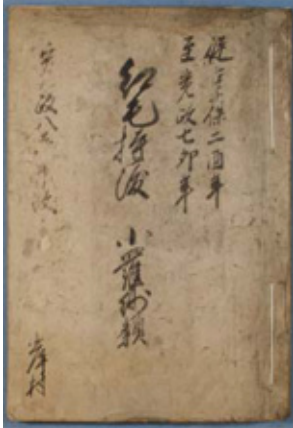 従享保二酉年
至寛政七卯年
紅毛持渡 小羅紗類
寛政八